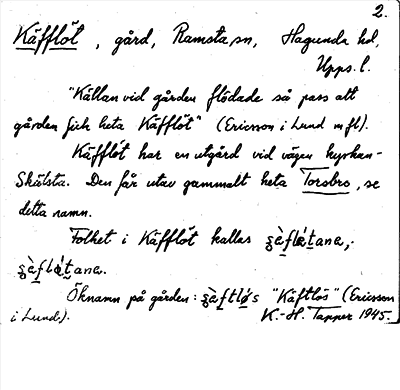 2.
Käfflöt, gård, Ramsta sn, Hagunda hd,
Upps. l.
"Källan vid gården flödade så pass att
gården fick heta Käfflöt" (Ericsson i Lund m fl).
Käfflöt har en utgård vid vägen kyrkan-
Skölsta. Den får utav gammalt heta Torsbro, se
detta namn.
Folket i Käfflöt kallas
Öknamn på gården: "Käftlös" (Ericsson
i Lund). K.-H. Tapper 1945.